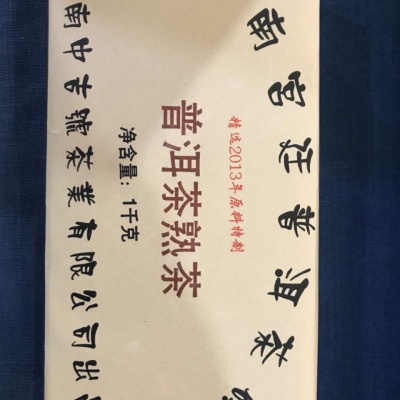 南宫廷普洱茶
精选2013年原料特制
普洱茶熟茶
净含量：1千克
南中吉號茶業有限公司出